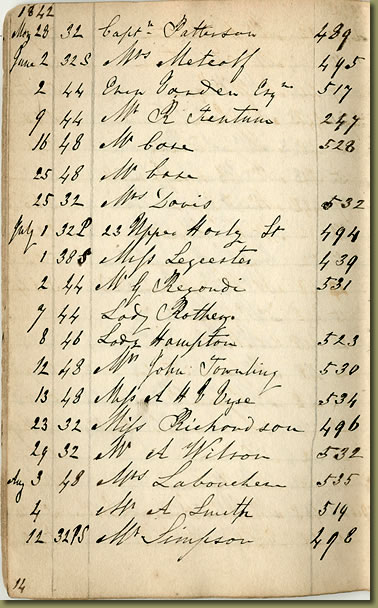 1842
May 28 32 Captn Patterson 489
June 2 32S Mrs Metcalf 495
2 44 Varden Esqr 517
9 44 Mr R Fentum 247
16 48 Mr Case 528
25 48 Mr Case
25 32 Mrs Davis 532
July 1 32P 23 Upper Harly St 494
1 38S Miss Legcester 439
2 44 Mr G Regondi 531
7 44 Lady Rothery
8 46 Lady Hampton 523
12 48 Mr John Townling 530
13 48 Miss A H Vyse 534
23 32 Miss Richardson 496
29 32 Mr A Wilson 532
Aug 3 48 Mrs Labouchere 535
4 Mr A Smith 519
12 32PS Mr Simpson 498
14